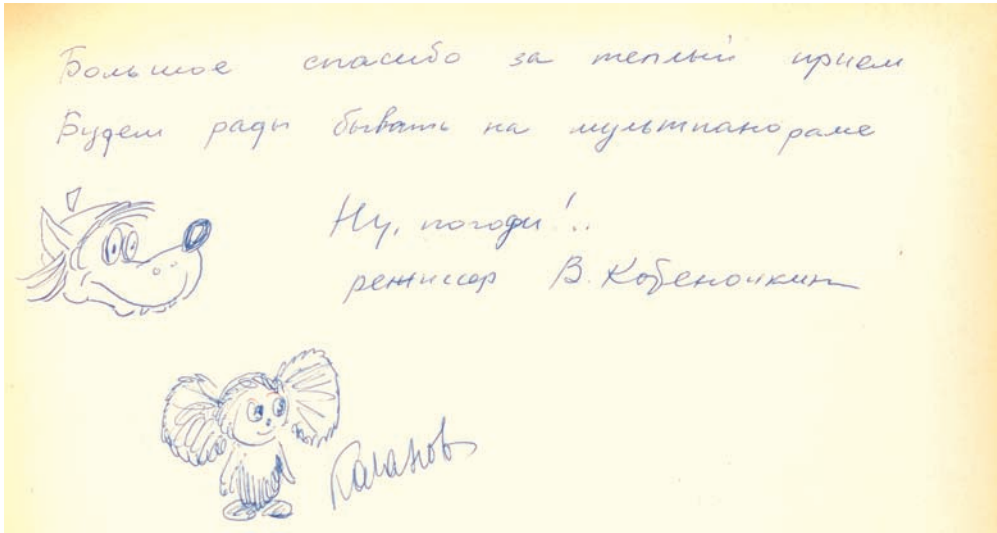 Большое спасибо за теплый прием
Будем рады бывать на мультпанораме
Ну, погоди!..
режиссер В. Котеночкин
Качанов